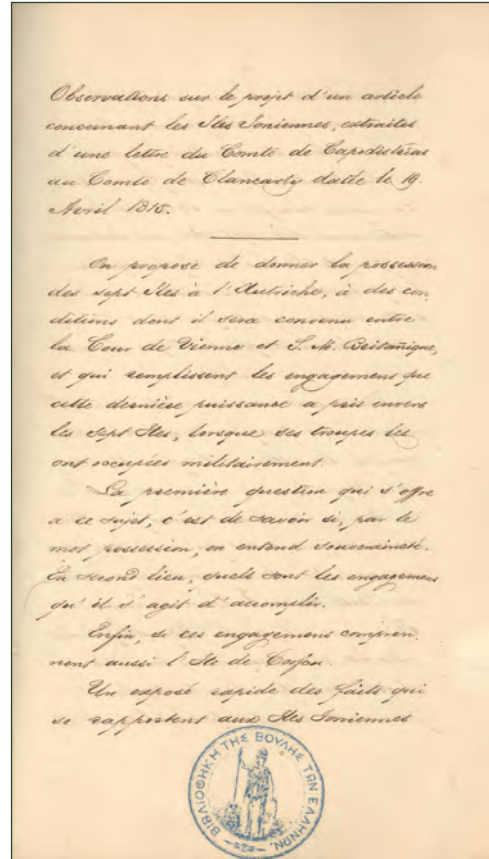 Observations sur le projet d'un article
concernant les Iles Ioniennes, extraites
d'une lettre du Comte de Capodistrias
au Comte de Clancarty datée le 19.
Avril 1815.
On propose de donner la possession
des sept Iles à l'Autriche, à des con-
ditions dont il sera convenu entre
la Cour de Vienne et S. M. Britanique,
et qui remplissent les engagemens que
cette dernière puissance a pris envers
les Sept Iles, lorsque ses troupes les
ont occupées militairement.
La première question qui s'offre
à ce sujet, c'est de savoir si, par le
mot possession, on entend Souveraineté.
En second lieu, quels sont les engagemens
qu'il s'agit d'accomplir.
Enfin, si ces engagemens compren-
nent aussi l'Ile de Corfou.
Un exposé rapide des faits qui
se rapportent aux Iles Ioniennes
ΒΙΒΛΙΟΘΗΚΗ ΤΗΣ ΒΟΥΛΗΣ ΤΩΝ ΕΛΛΗΝΩΝ